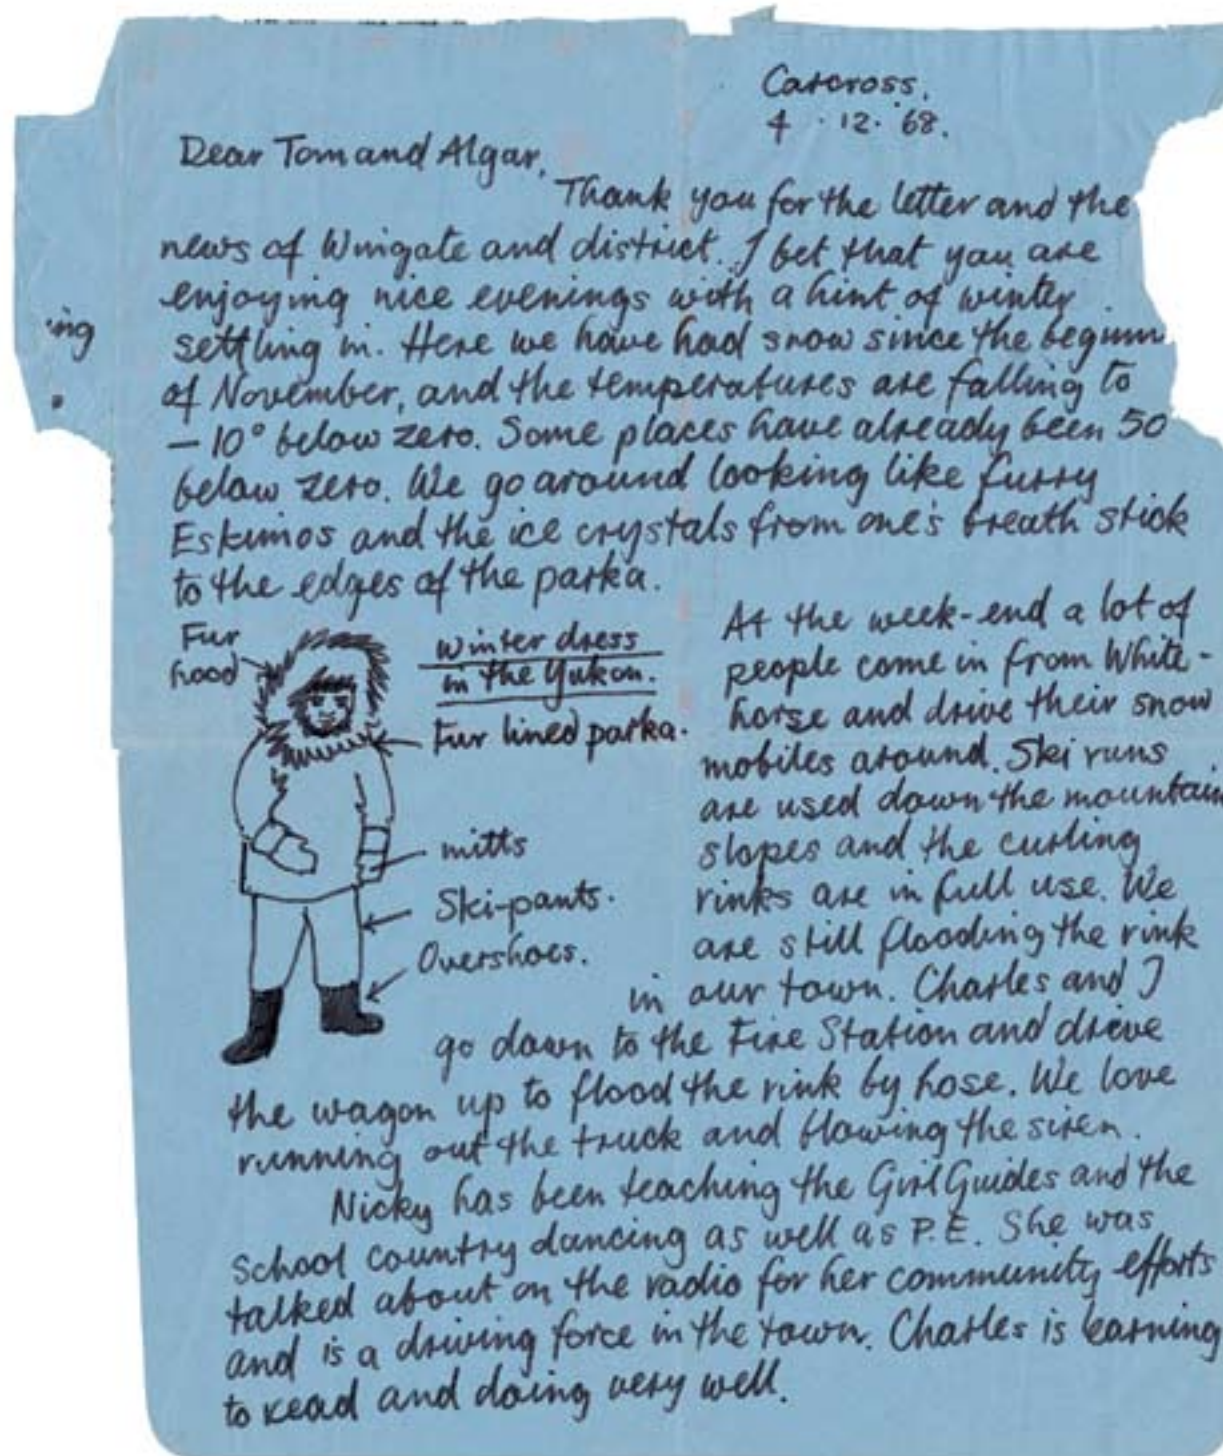 Carcross.
4 · 12 · '68.
Dear Tom and Algar,
Thank you for the letter and the
news of Wingate and district. I bet that you are
enjoying nice evenings with a hint of winter
settling in. Here we have had snow since the beginn
ing
of November, and the temperatures are falling to
– 10° below zero. Some places have already been 50
below zero. We go around looking like furry
Eskimos and the ice crystals from one's breath stick
to the edges of the parka.
Fur
hood
Winter dress
in the Yukon.
Fur lined parka.
mitts
Ski-pants.
Overshoes.
At the week-end a lot of
people come in from White-
horse and drive their snow
mobiles around. Ski runs
are used down the mountain
slopes and the curling
rinks are in full use. We
are still flooding the rink
in our town. Charles and I
go down to the Fire Station and drive
the wagon up to flood the rink by hose. We love
running out the truck and blowing the siren.
Nicky has been teaching the Girl Guides and the
school country dancing as well as P.E. She was
talked about on the radio for her community efforts
and is a driving force in the town. Charles is learning
to read and doing very well.